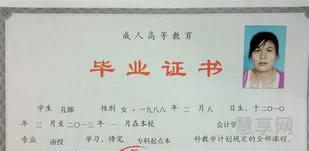 成人高等教育
毕业证书
学生 孔娜 性别 女,一九八六 年 二 月 八 日生,于二〇一〇
年 三 月至二〇一三年 一 月在本校 会计学
专业 函授 学习,修完 专科起点本 科教学计划规定的全部课程,
慧享网